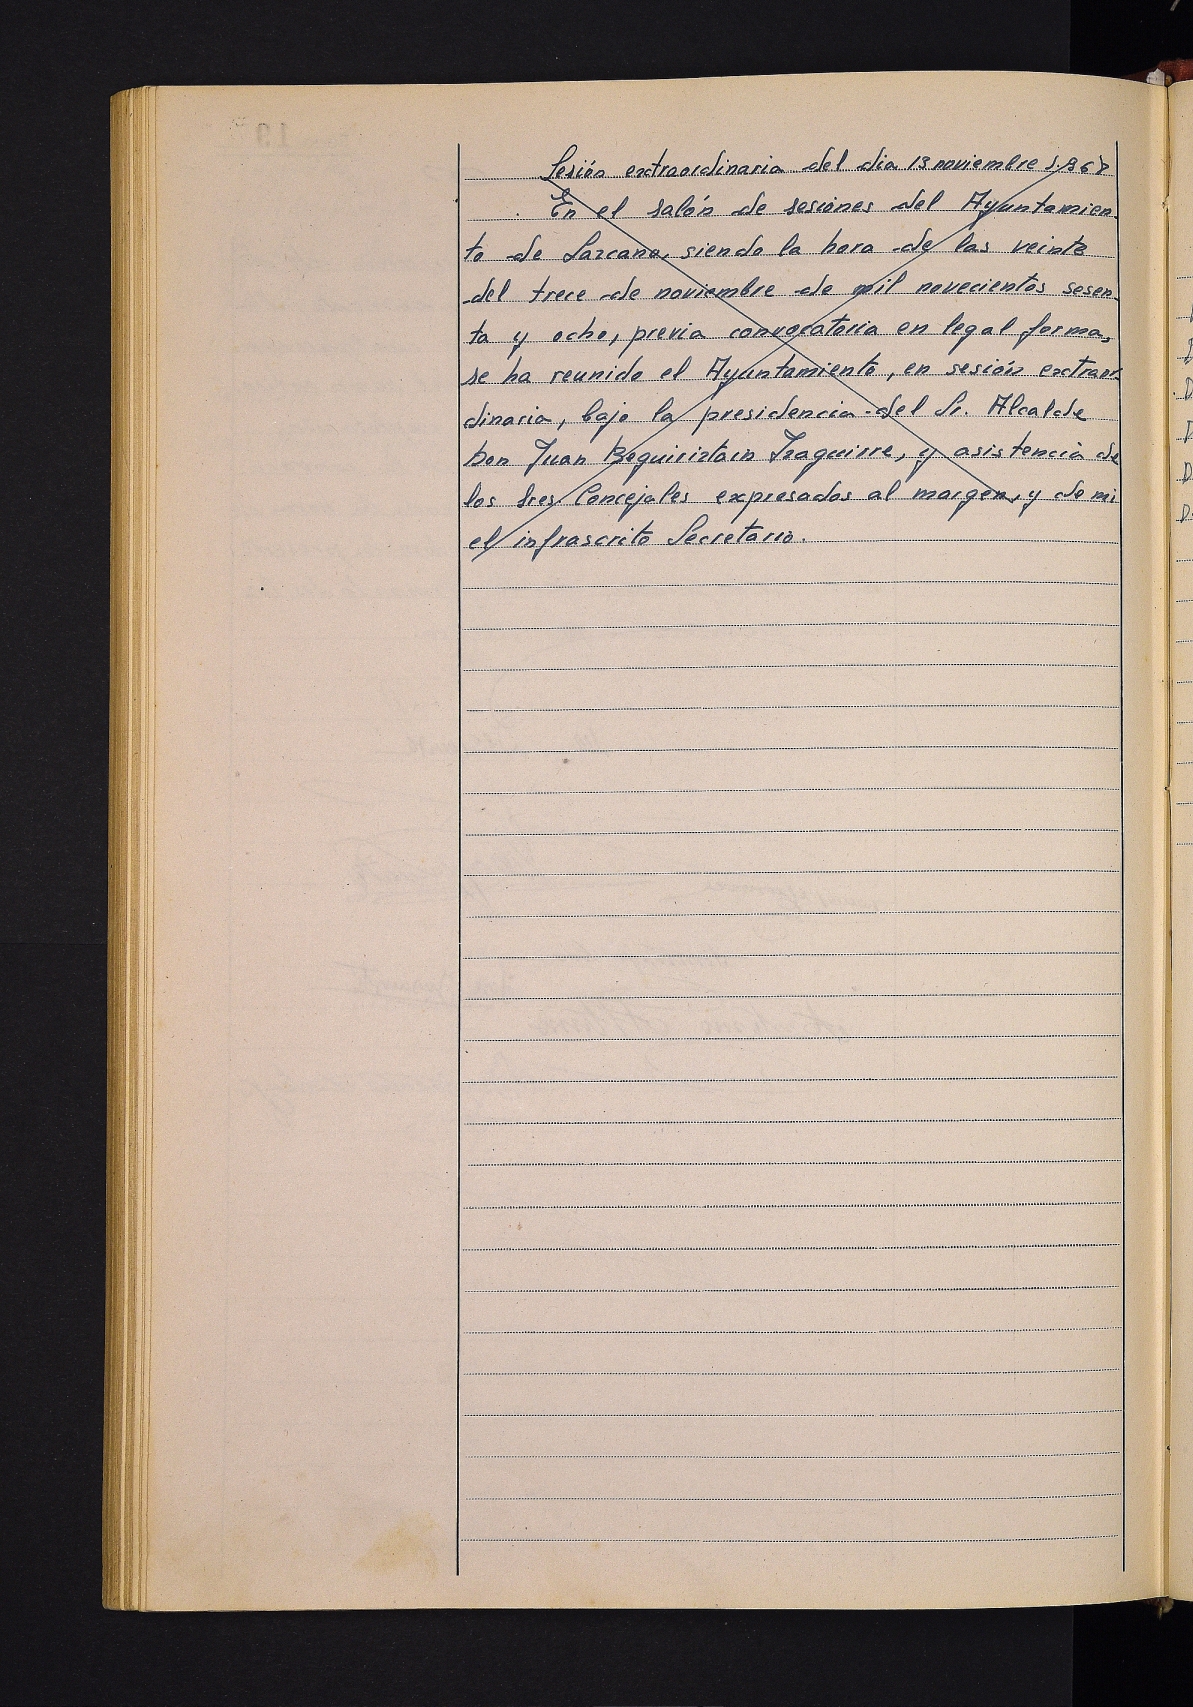 Sesión extraordinaria del dia 13 noviembre 1.968
En el salón de sesiones del Ayuntamien-
to de Lazcano, siendo la hora de las veinte
del trece de noviembre de mil novecientos sesen-
ta y ocho, previa convocatoria en legal forma,
se ha reunido el Ayuntamiento, en sesión extraor-
dinaria, bajo la presidencia del Sr. Alcalde
Don Juan Beguiristain Izaguirre, y asistencia de
los Sres. Concejales expresados al margen, y de mi
el infrascrito Secretario.